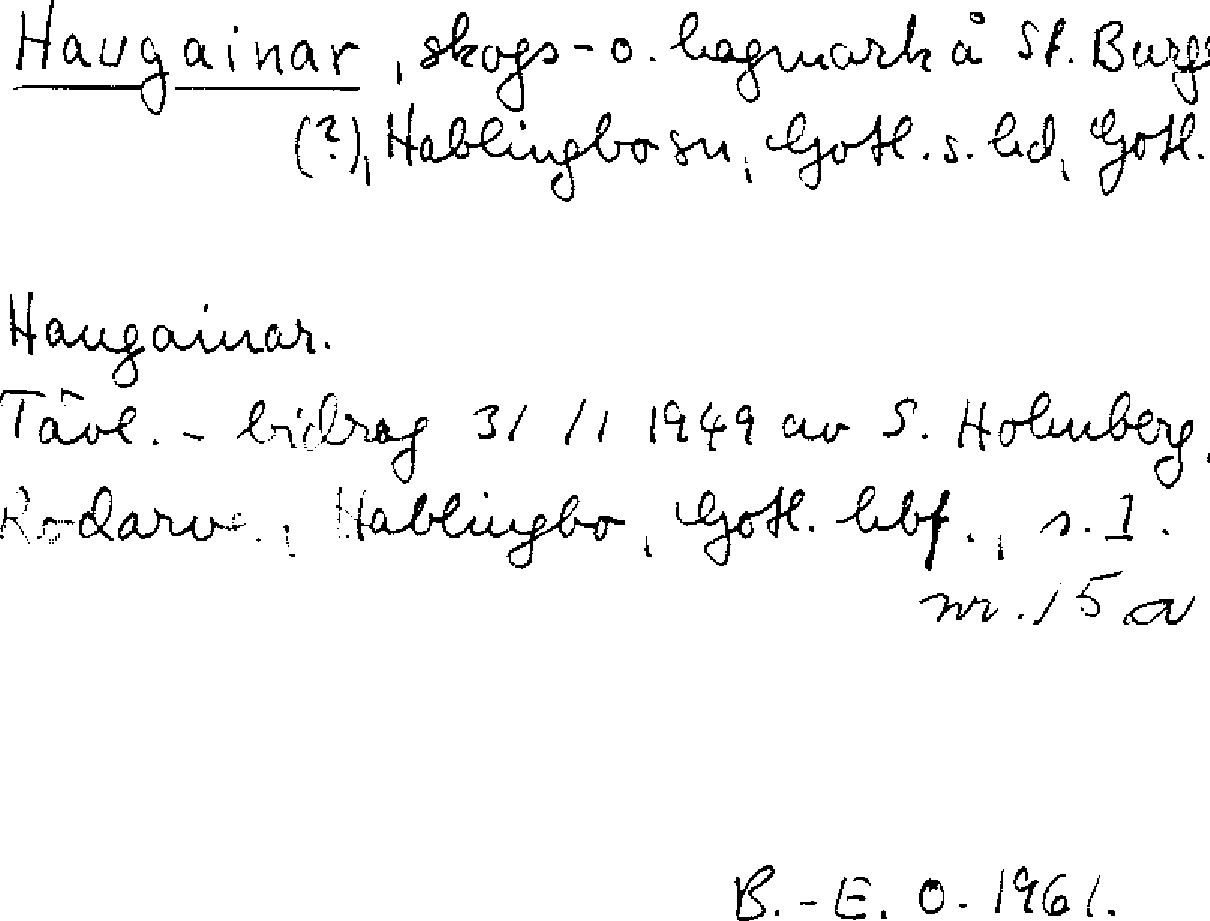 Haugainar, skogs- o. hagmark å St. Burgs
(?), Hablingbo sn, Gotl. s. hd, Gotl.
Haugainar.
Tävl. - bidrag 31/1 1949 av S. Holmberg,
Rodarve, Hablingbo, Gotl. hbf., s. 1.
nr. 15 a
B.-E. O. 1961.